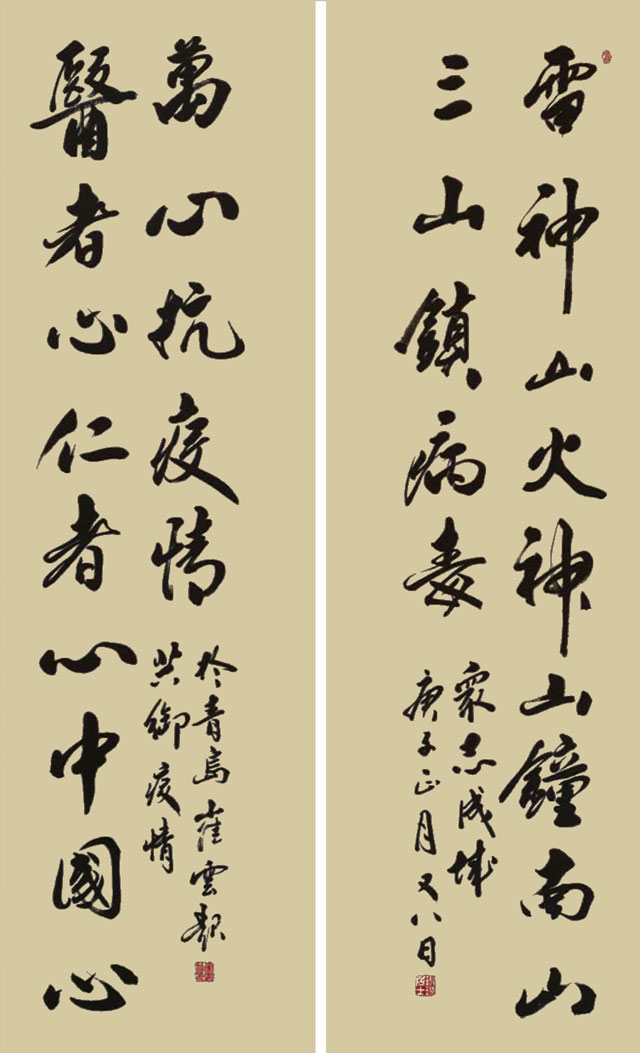 雷神山火神山鐘南山
三山鎮病毒
眾志成城
庚子正月又八日
醫者心仁者心中國心
萬心抗疫情
共御疫情
於青島崔雲